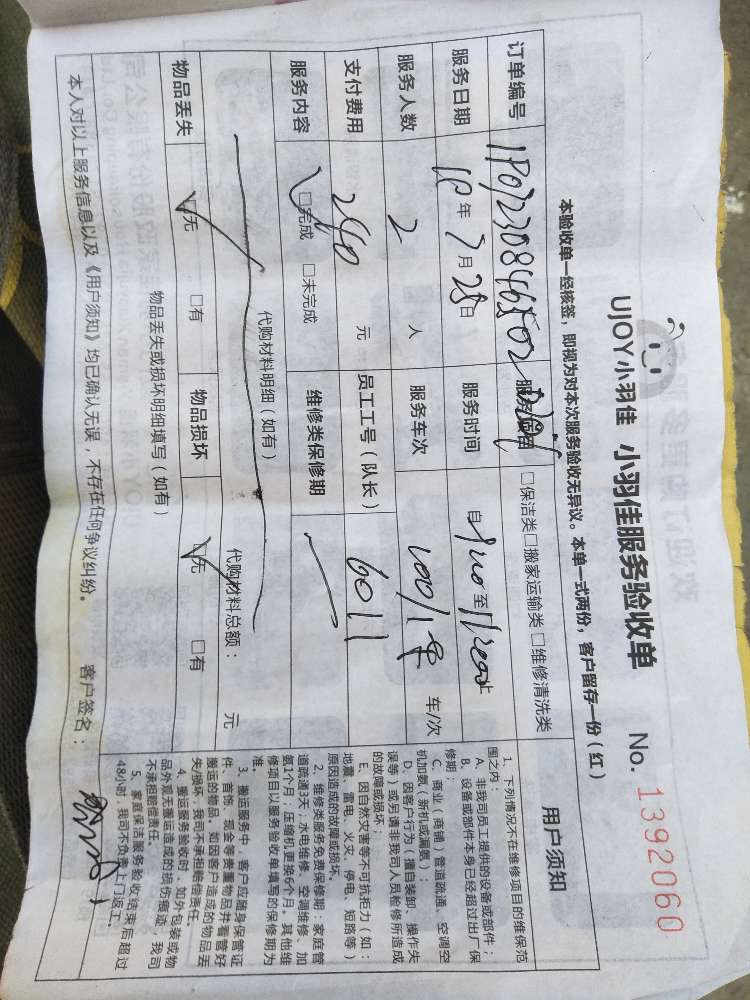 UJOY小羽佳 小羽佳服务验收单 No. 1392060
本验收单一经核签，即视为对本次服务验收无异议。本单一式两份，客户留存一份（红）
订单编号 □保洁类□搬家运输类□维修清洗类
服务日期 年 7月28日 服务时间 自 至 止
服务人数 2 人 服务车次 车/次
支付费用 240 元 员工工号（队长） 6011
服务内容 □完成 □未完成 维修类保修期
代购材料明细（如有） 代购材料总额： 元
物品丢失 □无 □有 物品损坏 □无 □有
物品丢失或损坏明细填写（如有）
本人对以上服务信息以及《用户须知》均已确认无误，不存在任何争议纠纷。 客户签名：
用户须知
1、下列情况不在维修项目的维保范
围之内：
A、非我司员工提供的设备或部件；
B、设备或部件本身已经超过出厂保
修期；
C、商业（商铺）管道疏通、空调空
机加氨（新机或漏氨）；
D、因客户行为（擅自装卸、操作失
误等）或另请非我司人员检修所造成
的故障或损坏；
E、因自然灾害等不可抗拒力（如：
地震、雷电、火灾、停电、短路等）
原因造成的故障或损坏。
2、维修类服务免费保修期：家庭管
道疏通3天；水电维修、空调维修、加
氨1个月；压缩机更换6个月。其他维
修项目以服务验收单填写的保修期为
准。
3、搬运服务中，客户应随身保管证
件、首饰、现金等贵重物品并看管好
搬运的物品，如因客户造成的物品丢
失/损坏，我司不承担赔偿责任。
4、搬运服务验收时，如外包装或物
品外观无搬运造成的损伤痕迹，我司
不承担赔偿责任。
5、家庭保洁服务验收结束后超过
48小时，我司不负责上门返工。